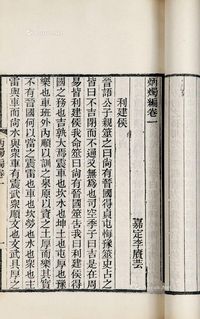 炳燭編卷一
嘉定李賡芸
利建侯
晉語公子親筮之曰尚有晉國得貞屯悔豫筮史占之
皆曰不吉閉而不通爻無為也司空季子曰吉是在周
易皆利建侯我命筮曰尚有晉國筮告我曰利建侯
國之務也吉孰大焉震車也坎水也坤土也屯厚也豫
樂也車班外內順以訓之泉原以資之土厚而樂其實
不有晉國何以當之震雷也車也坎勞也水也眾也主
雷與車而尚水與眾車有震武眾順文也文武具厚之
炳燭編 卷一